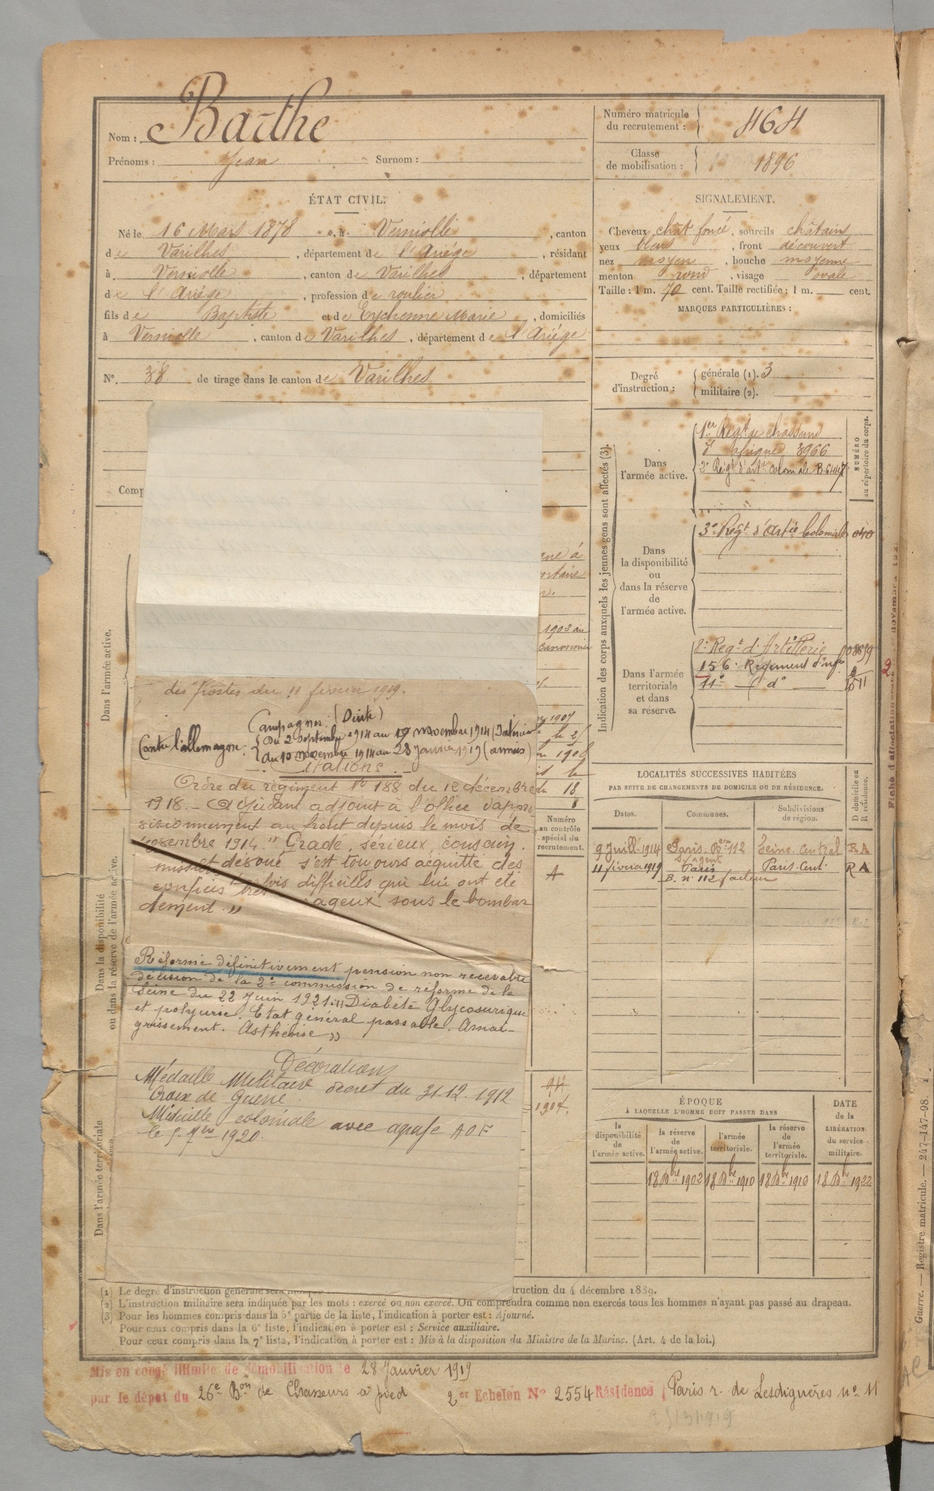 Nom : Barthe
Prénoms : Jean Surnom :
Numéro matricule du recrutement : 464
Classe de mobilisation : 1896
ÉTAT CIVIL.
Né le 16 Mars 1878, à Verniolle, canton
de Varilhes, département de l'Ariège, résidant
à Verniolle, canton de Varilhes, département
de l'Ariège, profession de roulier
fils de Baptiste et de Eychenne Marie, domiciliés
à Verniolle, canton de Varilhes, département de l'Ariège
N° 38 de tirage dans le canton de Varilhes
SIGNALEMENT.
Cheveux chat foncé, sourcils châtain
yeux bleus, front découvert
nez moyen, bouche moyenne
menton rond, visage ovale
Taille : 1 m. 70 cent. Taille rectifiée : 1 m. cent.
MARQUES PARTICULIÈRES :
Degré d'instruction : générale (1). 3
militaire (2).
Comp
Dans l'armée active.
Dans la disponibilité ou dans la réserve de l'armée active.
Dans l'armée territoriale
des Postes du 11 février 1919.
Campagnes : (Suite)
Contre l'allemagne : Du 2 septembre 1914 au 19 novembre 1914 (Intérieur)
du 10 novembre 1914 au 28 janvier 1919 (armées)
Citations.
Ordre du régiment N° 188 du 12 décembre
1918. Adjudant adjoint à l'officier d'appro
visionnement au front depuis le mois de
novembre 1914. " Gradé, sérieux, consciin.
dévoué s'est toujours acquitté des
difficiles qui lui ont été
confiées
sous le bombar
dement. "
Réformé définitivement pension non recevable
décision de la 2e commission de réforme de la
Seine du 22 juin 1921. " Diabète Glycosurique
et polyurie. Etat général passable. Amai-
grissement. Asthénie "
Décorations
Médaille Militaire décret du 31.12.1912
Croix de Guerre.
Médaille coloniale avec agrafe A.O.F
1920.
Indication des corps auxquels les jeunes gens sont affectés (3).
NUMÉRO au répertoire du corps.
Dans l'armée active.
1er Régt de chasseurs
d'afrique 3966
2e Régt d'artie coloniale
Dans la disponibilité ou dans la réserve de l'armée active.
3e Régt d'Artie Coloniale 040
Dans l'armée territoriale et dans sa réserve.
2e Regt d'Artillerie
156e Régiment d'infie
11e — d°
LOCALITÉS SUCCESSIVES HABITÉES
PAR SUITE DE CHANGEMENTS DE DOMICILE OU DE RÉSIDENCE.
Dates. Communes. Subdivisions de région. D domicile ou R résidence.
9 Juill. 1914 Paris. Seine central R A
11 février 1919 Paris Paris Cent. R A
B. n° 112 facteur
Numéro au contrôle spécial du recrutement.
1904.
ÉPOQUE
À LAQUELLE L'HOMME DOIT PASSER DANS
la disponibilité de l'armée active. la réserve de l'armée active. l'armée territoriale. la réserve de l'armée territoriale.
DATE de la LIBÉRATION du service militaire.
18 Bre 1902 18 Bre 1910 18 Bre 1910 18 Bre 1922
(1) Le degré d'instruction générale sera truction du 4 décembre 1889.
(2) L'instruction militaire sera indiquée par les mots : exercé ou non exercé. On comprendra comme non exercés tous les hommes n'ayant pas passé au drapeau.
(3) Pour les hommes compris dans la 5e partie de la liste, l'indication à porter est : Ajourné.
Pour ceux compris dans la 6e liste, l'indication à porter est : Service auxiliaire.
Pour ceux compris dans la 7e liste, l'indication à porter est : Mis à la disposition du Ministre de la Marine. (Art. 4 de la loi.)
Mis en congé illimité de démobilisation le 28 Janvier 1919
par le dépôt du 26e Bon de Chasseurs à pied 2e Echelon N° 2554 Résidence Paris r. de Lesdiguères n° 11
Guerre. — Registre matricule. — 247-147-98.